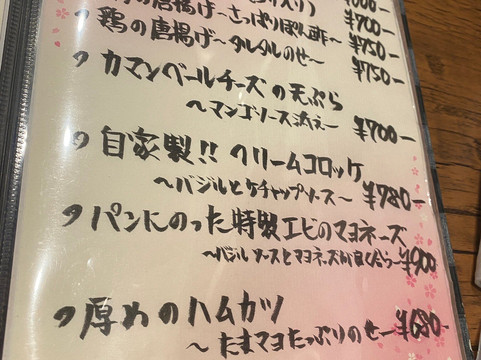 ¥700-
鶏の唐揚げ~さっぱりぽん酢~ ¥750-
鶏の唐揚げ~タルタルのせ~ ¥750-
カマンベールチーズの天ぷら
~マンゴソース添え~ ¥700-
自家製!! クリームコロッケ
~バジルとケチャップソース~ ¥780-
パンにのった特製エビのマヨネーズ
~バジルソースとマヨネーズが良く合う~ ¥900
厚めのハムカツ
~たまマヨたっぷりのせ~ ¥680-